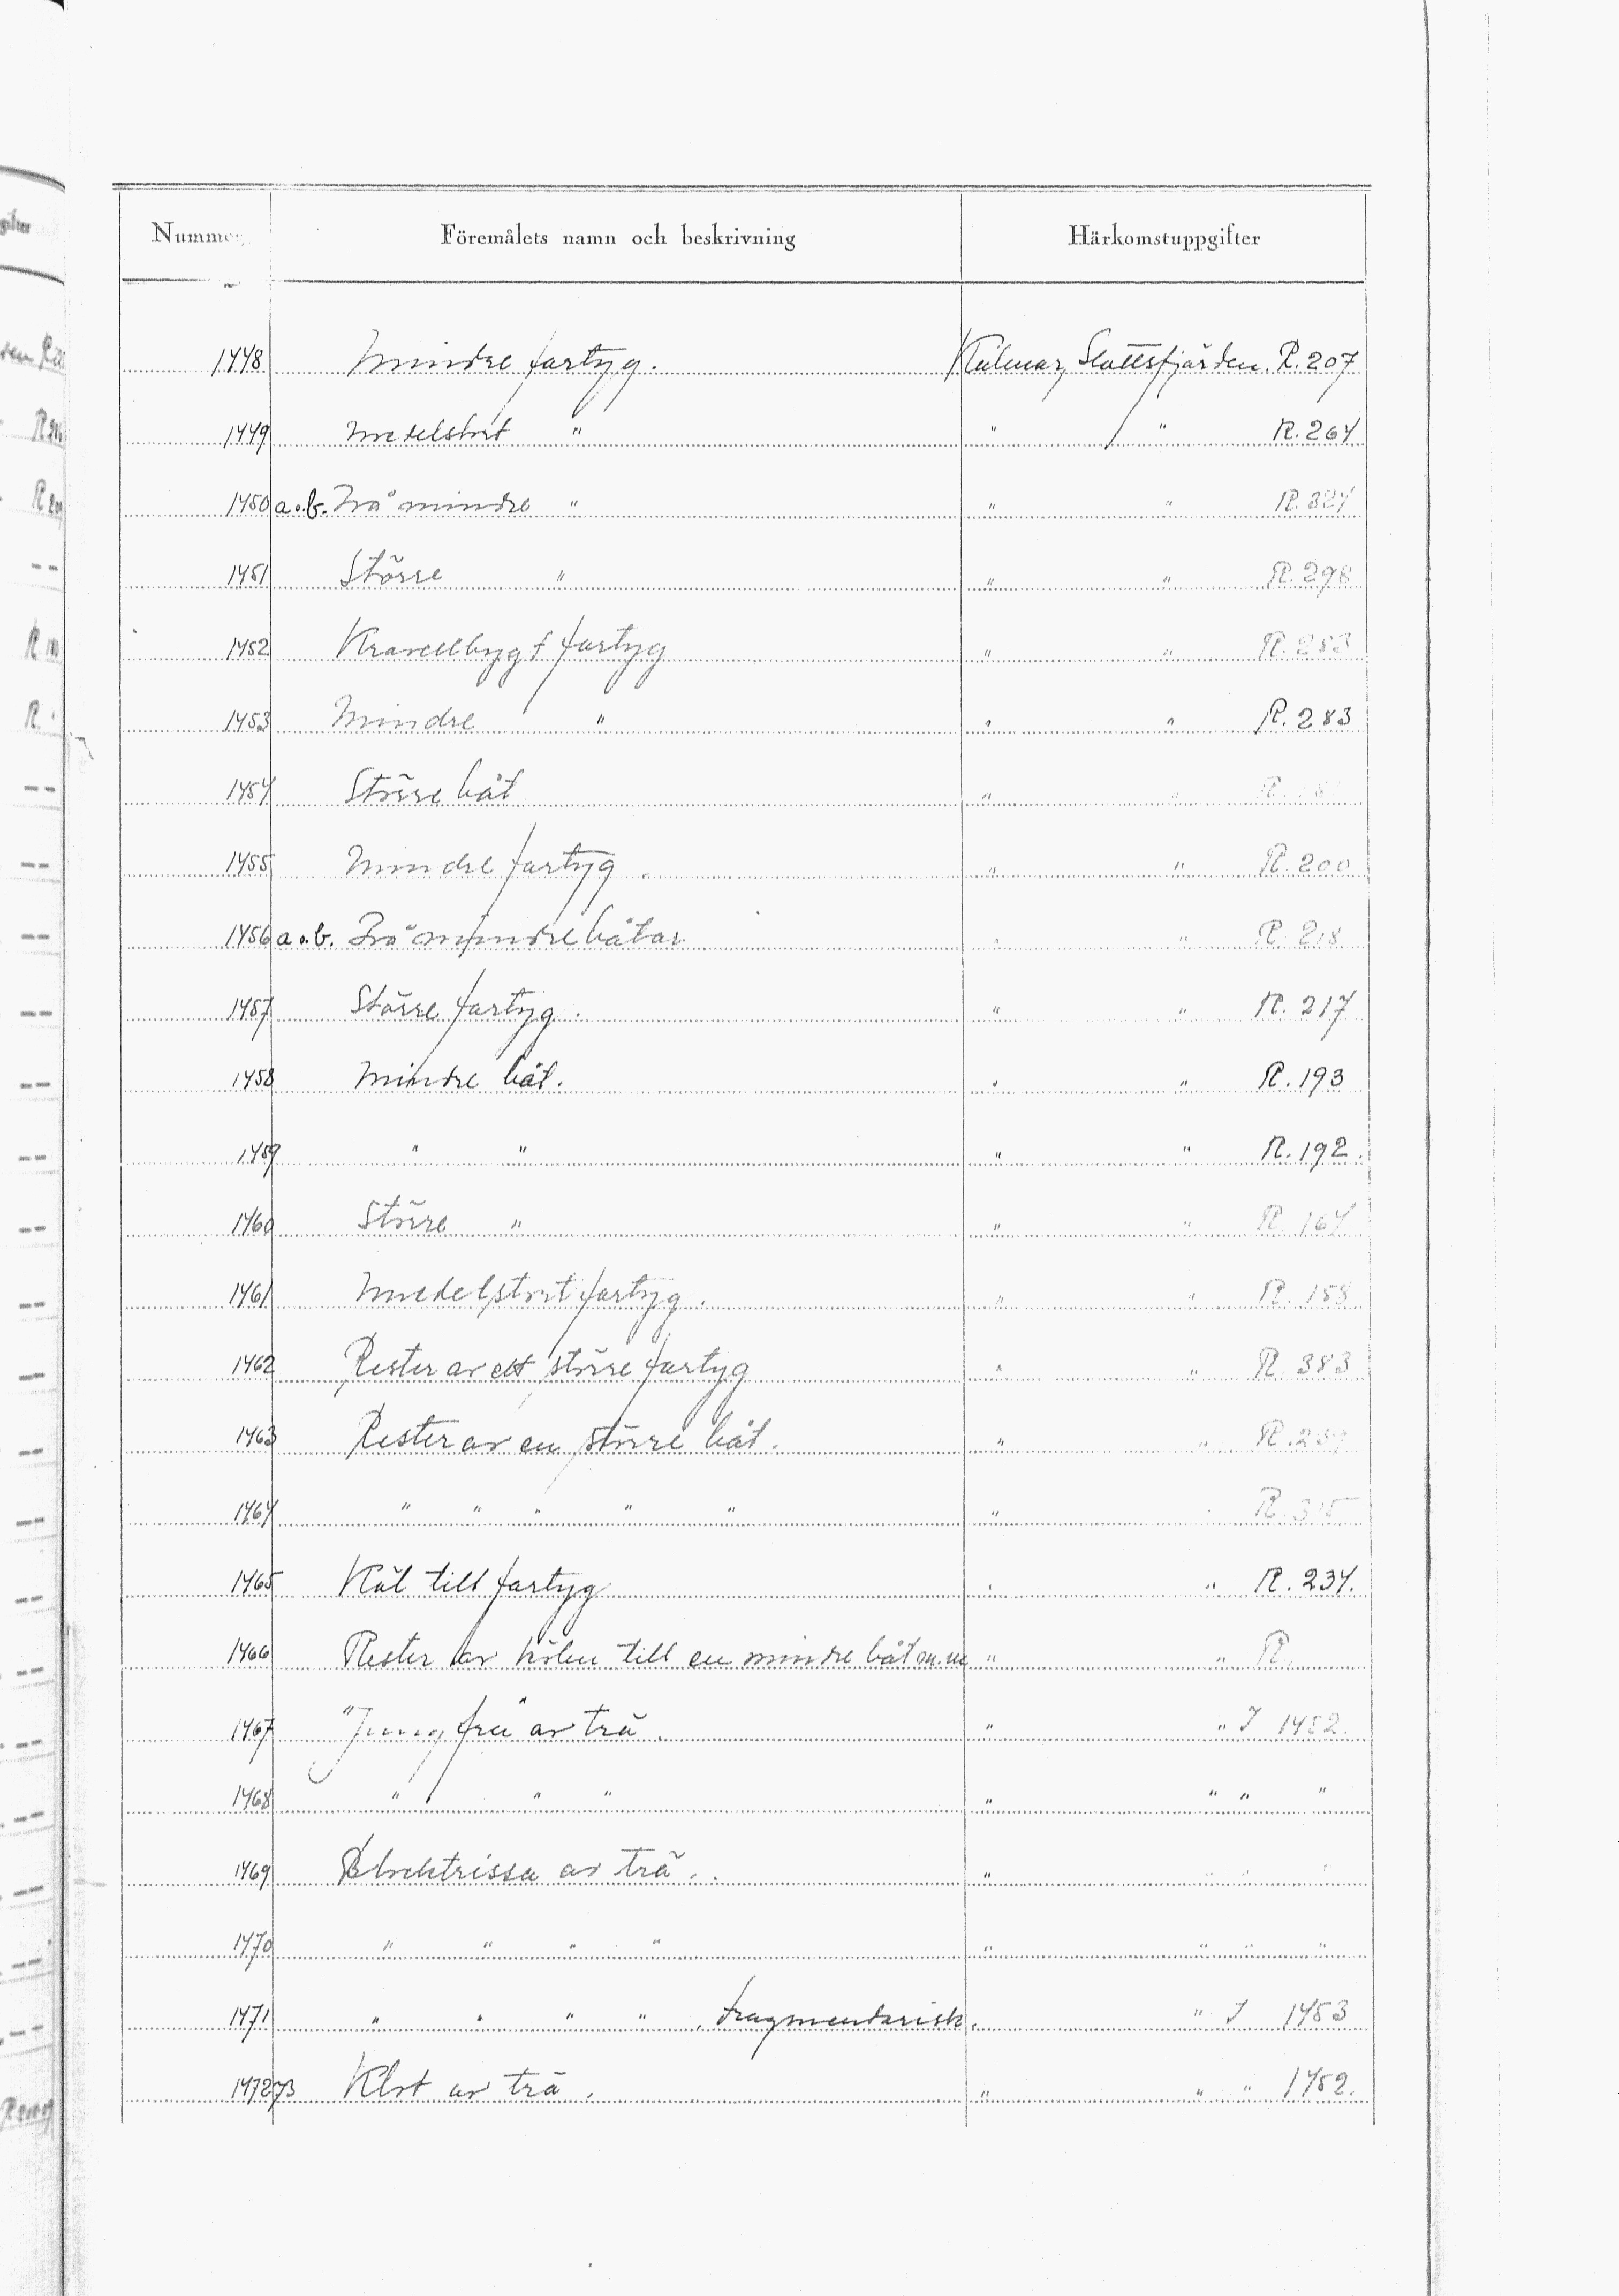 Nummer Föremålets namn och beskrivning Härkomstuppgifter
1448 Mindre fartyg. Kalmar, Slottsfjärden. R. 207
1449 Medelstort " " " R. 264
1450 a.o.b. Två mindre " " " R. 324
1451 Större " " " R. 298
1452 Kravellbygt fartyg " " R. 253
1453 Mindre " " " R. 283
1454 Större båt " " R.
1455 Mindre fartyg. " " R. 200
1456 a.o.b. Två mindre båtar " " R. 218
1457 Större fartyg. " " R. 217
1458 Mindre båt. " " R. 193
1459 " " " " R. 192.
1460 Större " " " R. 164
1461 Medelstort fartyg. " " R. 153
1462 Rester av ett större fartyg " " R. 383
1463 Rester av en större båt. " " R.
1464 " " " " " " " R. 315
1465 Köl till fartyg " " R. 234.
1466 Rester av kölen till en mindre båt m.m " " R.
1467 "Jungfru" av trä. " " J 1452.
1468 " " " " " " "
1469 Blocktrissa av trä. " " " "
1470 " " " " " " " "
1471 " " " " , fragmentarisk. " J 1453
1472 73 Klot av trä. " " " 1452.